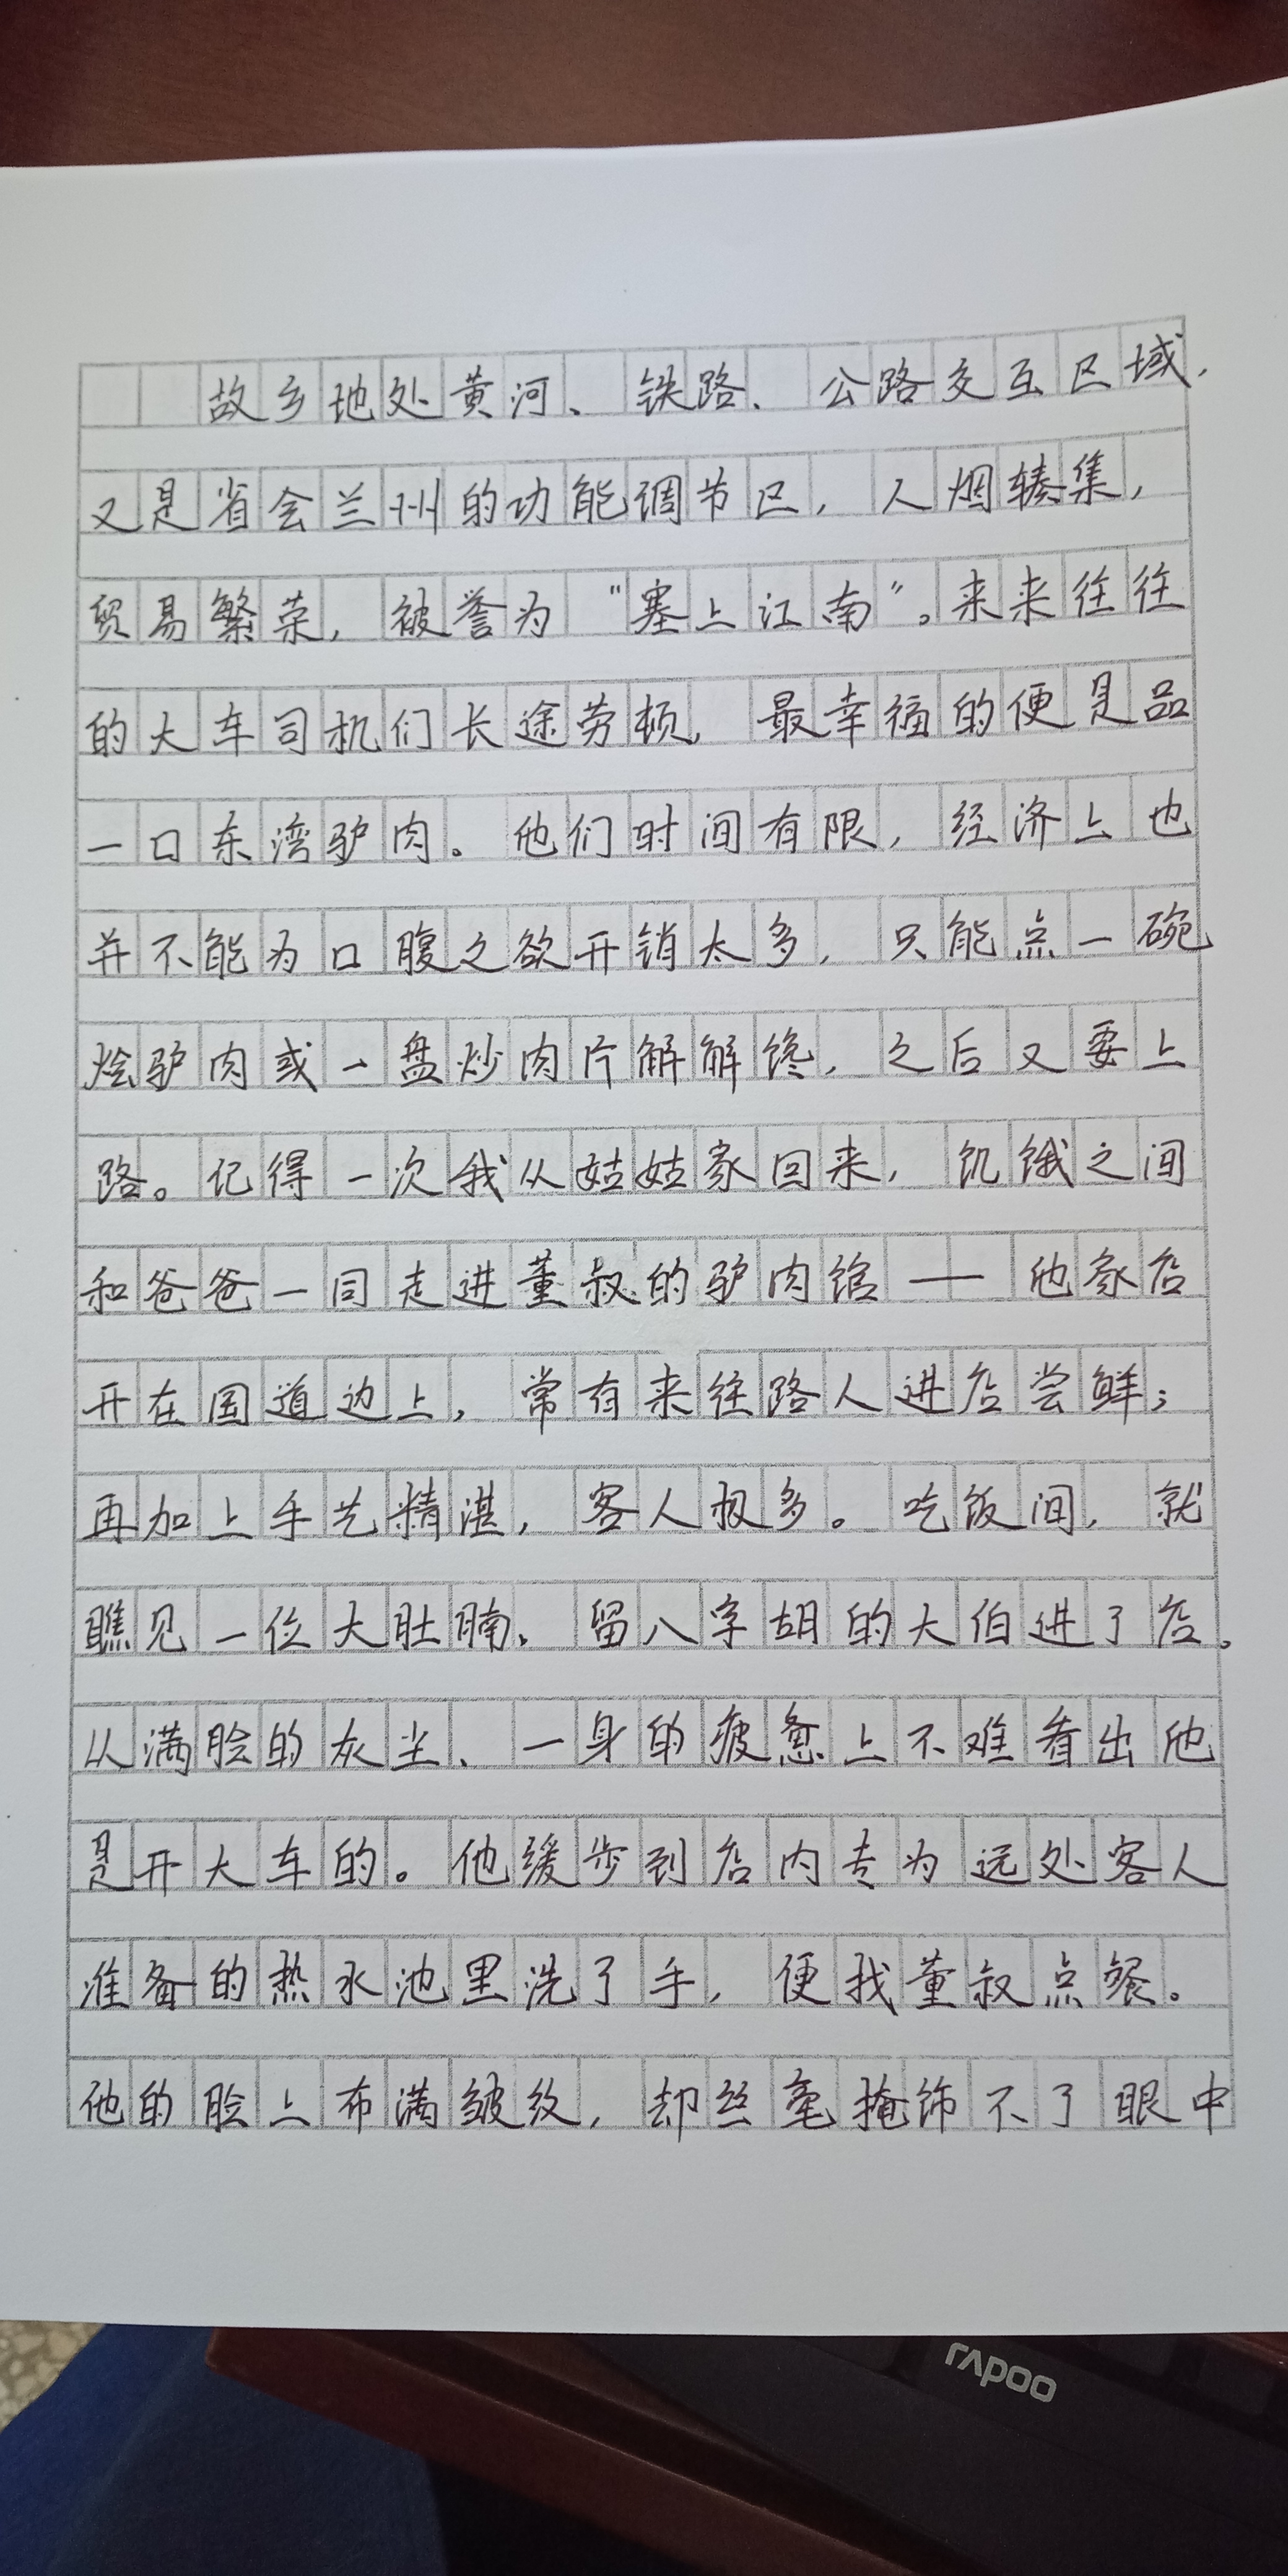 故乡地处黄河、铁路、公路交互区域，
又是省会兰州的功能调节区，人烟辏集，
贸易繁荣，被誉为"塞上江南"。来来往往
的大车司机们长途劳顿，最幸福的便是品
一口东湾驴肉。他们时间有限，经济上也
并不能为口腹之欲开销太多，只能点一碗
烩驴肉或一盘炒肉片解解馋，之后又要上
路。记得一次我从姑姑家回来，饥饿之间
和爸爸一同走进董叔的驴肉馆——他家店
开在国道边上，常有来往路人进店尝鲜；
再加上手艺精湛，客人极多。吃饭间，就
瞧见一位大肚腩、留八字胡的大伯进了店。
从满脸的灰尘、一身的疲惫上不难看出他
是开大车的。他缓步到店内专为远处客人
准备的热水池里洗了手，便找董叔点餐。
他的脸上布满皱纹，却丝毫掩饰不了眼中
rapoo